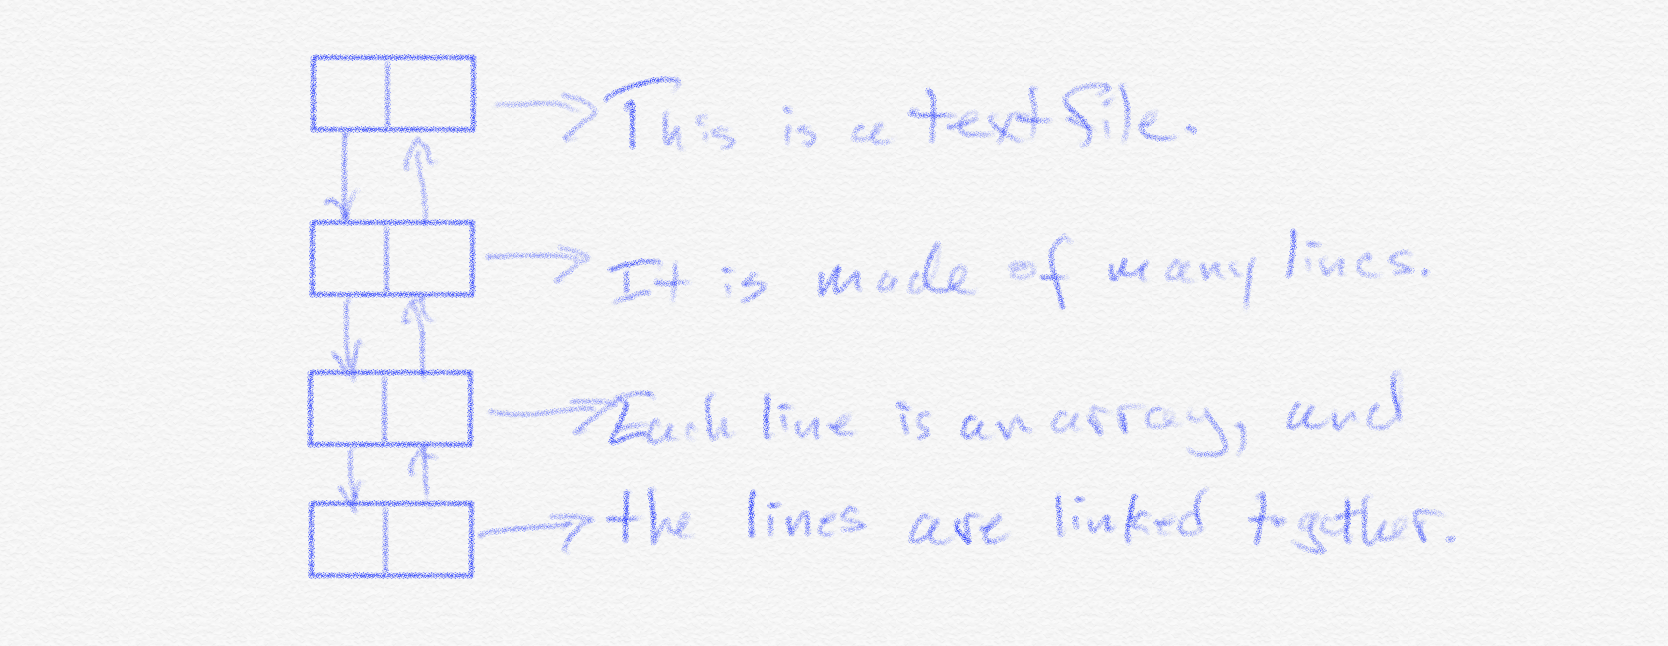 This is a text file.
It is made of many lines.
Each line is an array, and
the lines are linked together.